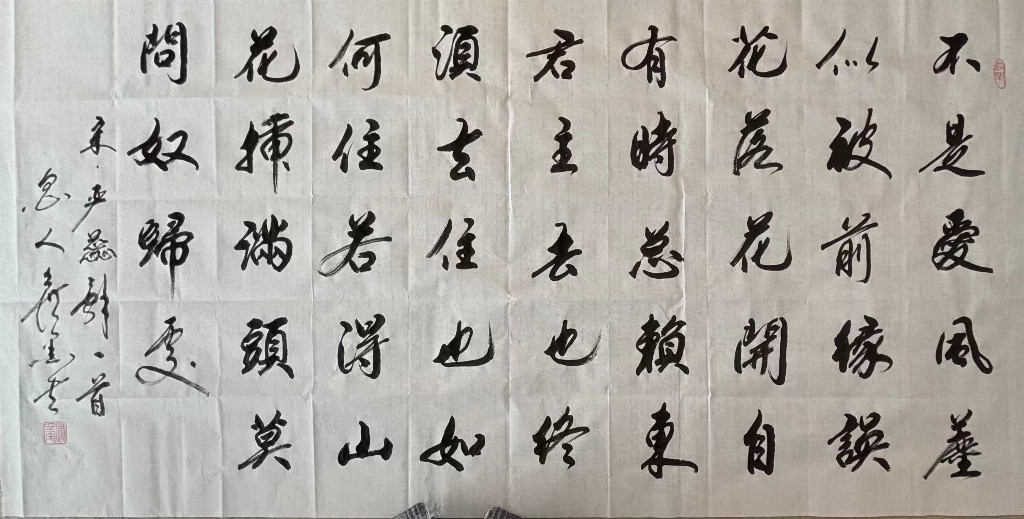 不是愛風塵
似被前緣誤
花落花開自
有時总賴東
君主去也終
須去住也如
何住若得山
花插滿頭莫
問奴歸處
宋·严蕊辭一首